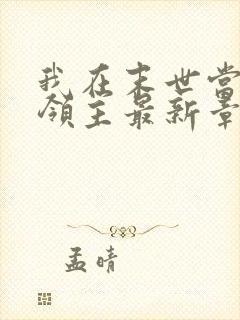 我在末世当
领主最新章
孟晴